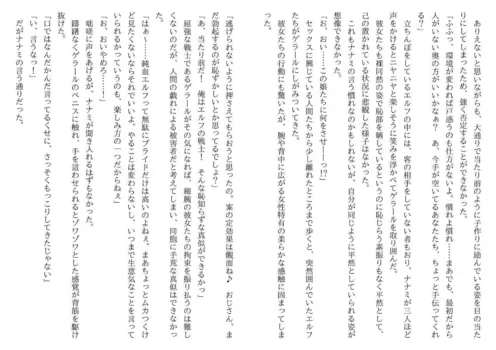 ありえないと思いながらも、大通りで当たり前のように子作りに励んでいる姿を目の当た
りにしてしまったため、強く否定することができなかった。
「ふふっ、環境が変われば戸惑うのも仕方がないよ。慣れよ慣れ……まあでも、最初だから
人がいない奥の方がいいかな？　あ、今手が空いてるあなたたち、ちょっと手伝ってくれ
る？」
立ちんぼをしているエルフの中には、客の相手をしていない者もおり、ナナミが三人ほど
声をかけるとニヤニヤと楽しそうに笑みを浮かべてゲラールを取り囲んだ。
彼女たちも裸同然の姿で恥部を晒しているというのに恥じらう素振りもなく平然として、
己の置かれている状況に悲観した様子はなかった。
これもナナミの言う慣れなのかもしれないが、自分が同じように平然としていられる姿が
想像できなかった。
「お、おい……この娘たちに何をさせ――っ!?」
セックスに興じている人間たちから少し離れたところまで歩くと、突然囲んでいたエルフ
たちがゲラールにしがみついてきた。
彼女たちの行動にも驚いたが、腕や背中に広がる女性特有の柔らかな感触に固まってしま
「逃げられないように押さえてもらおうと思ったの。案の定効果は覿面ね♪　おじさん、ま
だ勃起するのが恥ずかしいとか思ってるでしょ？」
「あ、当たり前だ！　俺はエルフの戦士！　そんな恥知らずな真似ができるかっ」
屈強な戦士であるゲラールがその気になれば、細腕の彼女たちの拘束を振り払うのは難し
くないのだが、人間の戯れによる被害者だと考えてしまい、同胞に手荒な真似はできなかっ
た。
「はぁ～……純血エルフって無駄にプライドだけは高いのよねぇ。まあちょっとムカつくけ
ど見たくないならそれでいいよ。やることは変わらないし、いつまで生意気なことを言って
いられるかっていうのも、楽しみ方の一つだからねぇ」
「お、おいやめろ……！」
咄嗟に声をあげるが、ナナミが聞き入れるはずもなかった。
躊躇なくゲラールのペニスに触れ、手を這わせられるとゾワゾワとした感覚が背筋を駆け
抜けた。
「口ではなんだかんだ言ってるくせに、さっそくもっこりしてきたじゃない」
「い、言うなっ！」
だがナナミの言う通りだった。